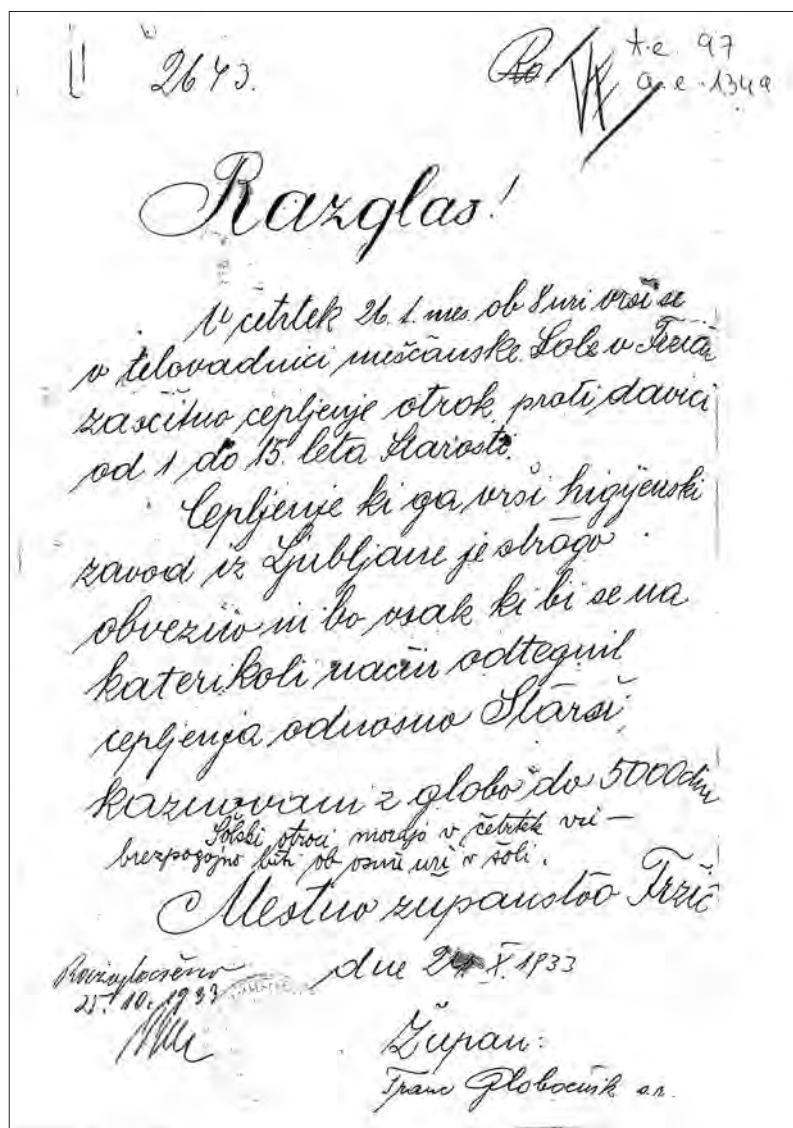 2643.
t.e. 97
a.e. 1349
Razglas!
V četrtek 26. t. mes. ob 8 uri vrši se
v telovadnici meščanske šole v Tržiču
zaščitno cepljenje otrok proti davici
od 1 do 15. leta starosti.
Cepljenje ki ga vrši higijenski
zavod iz Ljubljane je strogo
obvezno in bo vsak ki bi se na
katerikoli način odtegnil
cepljenja odnosno Starši
kaznovani z globo do 5000 din
Šolski otroci morajo v četrtek vsi —
brezpogojno biti ob osmi uri v šoli.
Mestno županstvo Tržič
dne X. 1933
Razglašeno
25. 10. 1933
Župan:
Franc Globočnik s.r.